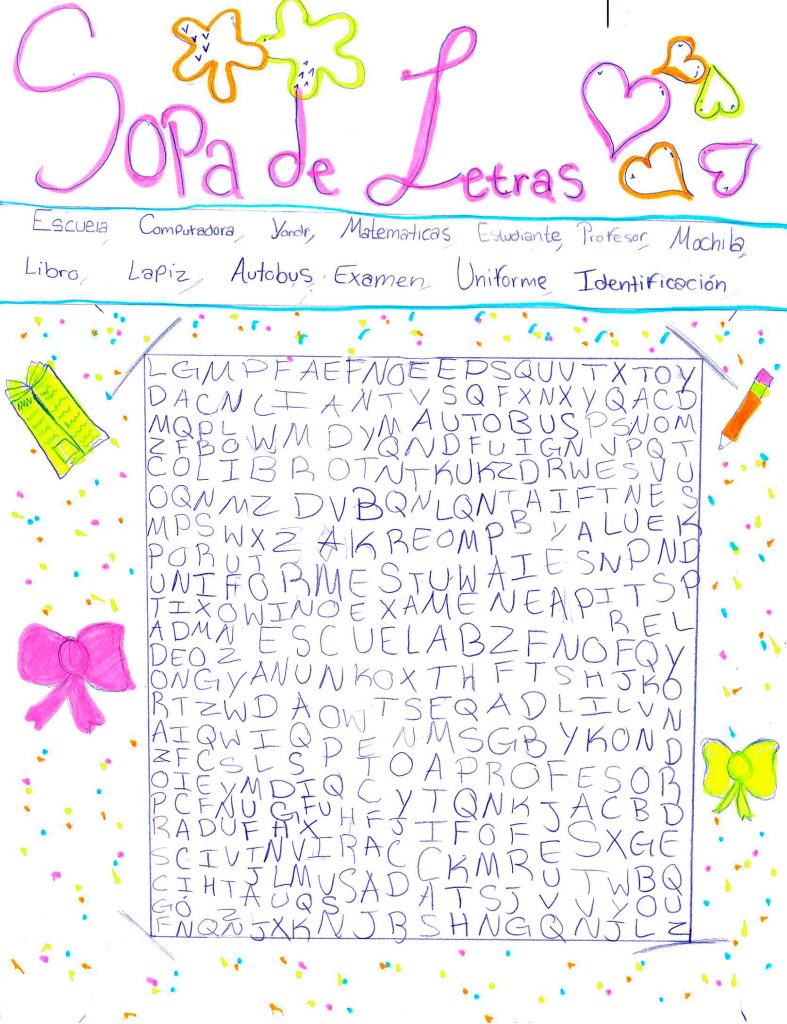 Sopa de Letras
Escuela, Computadora, Yandr, Matematicas Estudiante, Profesor, Mochila,
Libro, Lapiz, Autobus, Examen, Uniforme, Identificación
LGMPFAEFNOEEPSQUVTXTOY
DACNLIANTVSQFXNXYQACD
MQDLWMDYMAUTOBUSPSNOM
ZFBOWMDYQNDFUIGNVPQT
COLIBROTNTKUKZDRWESVU
OQNMZDVBQNLQNTAIFTNES
MPSWXZAKREOMPBYALUEK
PORUT
UNIFORMESTUWAIESNPND
TIXOWINOEXAMENEAPITSP
ADMNESCUELABZFNOFQY
DEOZ
ONGYANUNKOXTHFTSHJKO
RTZWDAOWTSEQADLILVN
AIQWIQPENMSGBYKOND
ZFCSLSPTOAPROFESOR
OIEYMDIQC
PCFNUGFUHFYTQNKJACBD
RADUFHXJIFOFESXGE
SCIVTNVIRACCKMREUTWBQ
CIHTJLMUSADATSJVVYOU
GÓZAUQS
FNQNJXKNJBSHNGQNJLZ